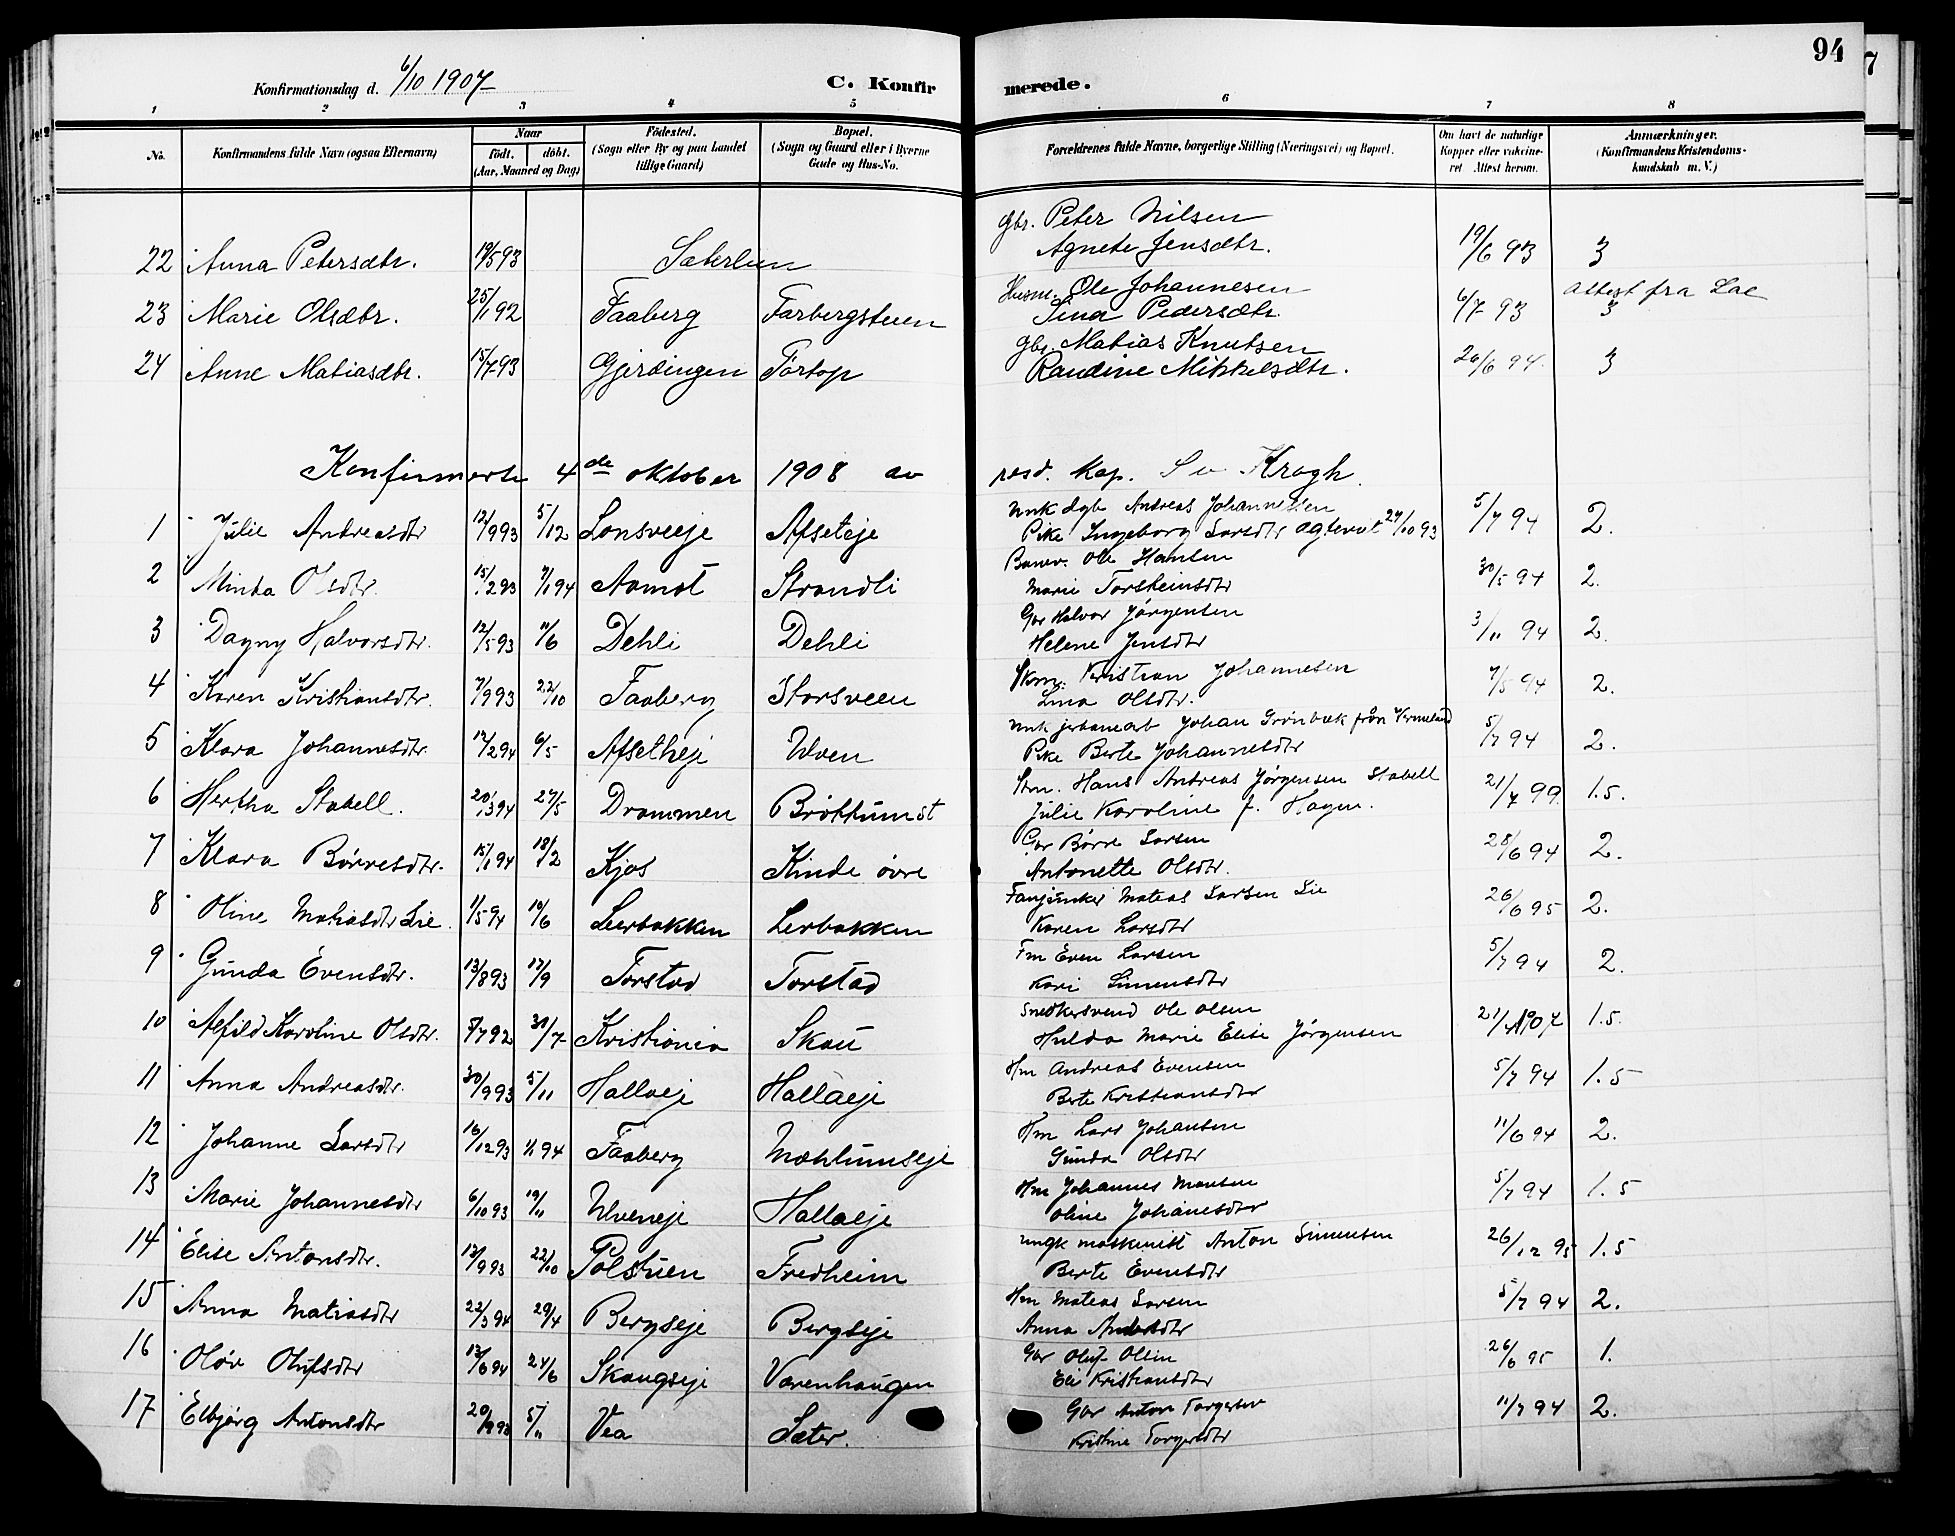 94
7
Konfirmationsdag d. 6/10 1907
C. Konfirmerede.
1 2 3 4 5 6 7 8
No. Konfirmandens fulde Navn (ogsaa Efternavn) Naar født. døbt. (Aar, Maaned og Dag) Fødested. (Sogn eller By og paa Landet tillige Gaard) Bopæl. (Sogn og Gaard eller i Byerne Gade og Hus-No. Forældrenes fulde Navne, borgerlige Stilling (Næringsvei) og Bopæl. Om havt de naturlige Kopper eller vakcineret Attest herom. Anmærkninger. (Konfirmandens Kristendomskundskab m. V.)
Gbr. Peter Nilsen
22 Anna Petersdtr. 19/5 93 Sæterlien Agnete Jensdtr. 19/6 93 3
Husm. Ole Johannesen Attest fra
23 Marie Olsdtr. 25/1 92 Faaberg Farbergstuen Sina Pedersdtr. 6/7 93 3
Gbr. Matias Knutsen
24 Anne Matiasdtr. 15/7 93 Gjerdingen Fortop Randine Mikkelsdtr. 26/6 94. 3
Konfirmerte 4de oktober 1908 av resd. Kap. S v Krogh
Unk dgb Andreas Johannessen
1 Julie Andreasdtr 12/9 93 5/12 Lonsveeje Afseteje Pike Ingeborg Larsdtr 27/10 93 5/7 94 2.
Banev. Ole Hansen
2 Minda Olsdtr. 15/12 93 7/1 94 Aamot Strandli Marie Torsteinsdtr 30/5 94 2.
Gbr Halvor Jørgensen
3 Dagny Halvorsdtr. 12/5 93 11/6 Dehli Dehli Helene Jensdtr 3/11 94 2.
Skm. Kristian Johannesen
4 Karen Kristiansdtr. 7/9 93 22/10 Faaberg Storsveen Lina Olsdtr. 7/5 94 2.
Unk jerbanearb Johan Grønbæk från Vermeland
5 Klara Johannesdtr. 12/2 94 6/5 Afsetheje Ulven Pike Berte Johannesdtr 5/7 94 2.
Stm. Hans Andreas Jørgensen Stabell
6 Hertha Stabell. 20/3 94 27/5 Drammen Brøttum st Julie Karoline f. Hagen. 21/7 99 1.5.
Gbr Børre Larsen
7 Klara Børresdtr. 15/1 94 18/2 Kjos Kinde øvre Antonette Olsdtr. 28/6 94 2.
Fanejunker Mateas Larsen Lie
8 Oline Matiasdtr Lie. 1/5 94 10/6 Leerbakken Lerbakken Karen Larsdtr 26/6 95 2.
Fm Even Larsen
9 Gunda Evensdtr. 13/8 93 17/9 Torstad Torstad Kari Simensdtr 5/7 94 2.
Snedkersvend Ole Olsen
10 Alfild Karoline Olsdtr. 5/7 92 31/7 Kristiania Skau Hulda Marie Elise Jørgensen 21/7 1907 1.5.
Hm Andreas Evensen
11 Anna Andreasdtr. 30/9 93 5/11 Hallaeje Hallaeje Berte Kristiansdtr 5/7 94 1.5
Hm Lars Johansen
12 Johanne Larsdtr 16/12 93 1/1 94 Faaberg Mæhlumseje Gunda Olsdtr 11/6 94 2.
Hm Johannes Monsen
13 Marie Johannesdtr 6/10 93 19/11 Ulveneje Hallaeje Oline Johanesdtr 5/7 94 1.5
ungk maskinist Anton Simensen
14 Elise Antonsdtr. 13/9 93 22/10 Polstuen Fredheim Berte Evensdtr 26/12 95 1.5
Hm Mateas Larsen
15 Anna Matiasdtr 22/3 94 29/4 Bergseje Bergseje Anna 5/7 94 2.
Gbr Oluf Olsen
16 Oløv Olufsdtr 13/6 94 24/6 Skaugseje Varenhaugen Eli Kristiansdtr 26/6 95 1.
Gbr Anton Torgersen
17 Elbjørg Antonsdtr 20/9 93 5/11 Vea Sæter. Kristine Torgersdtr 11/7 94 2.